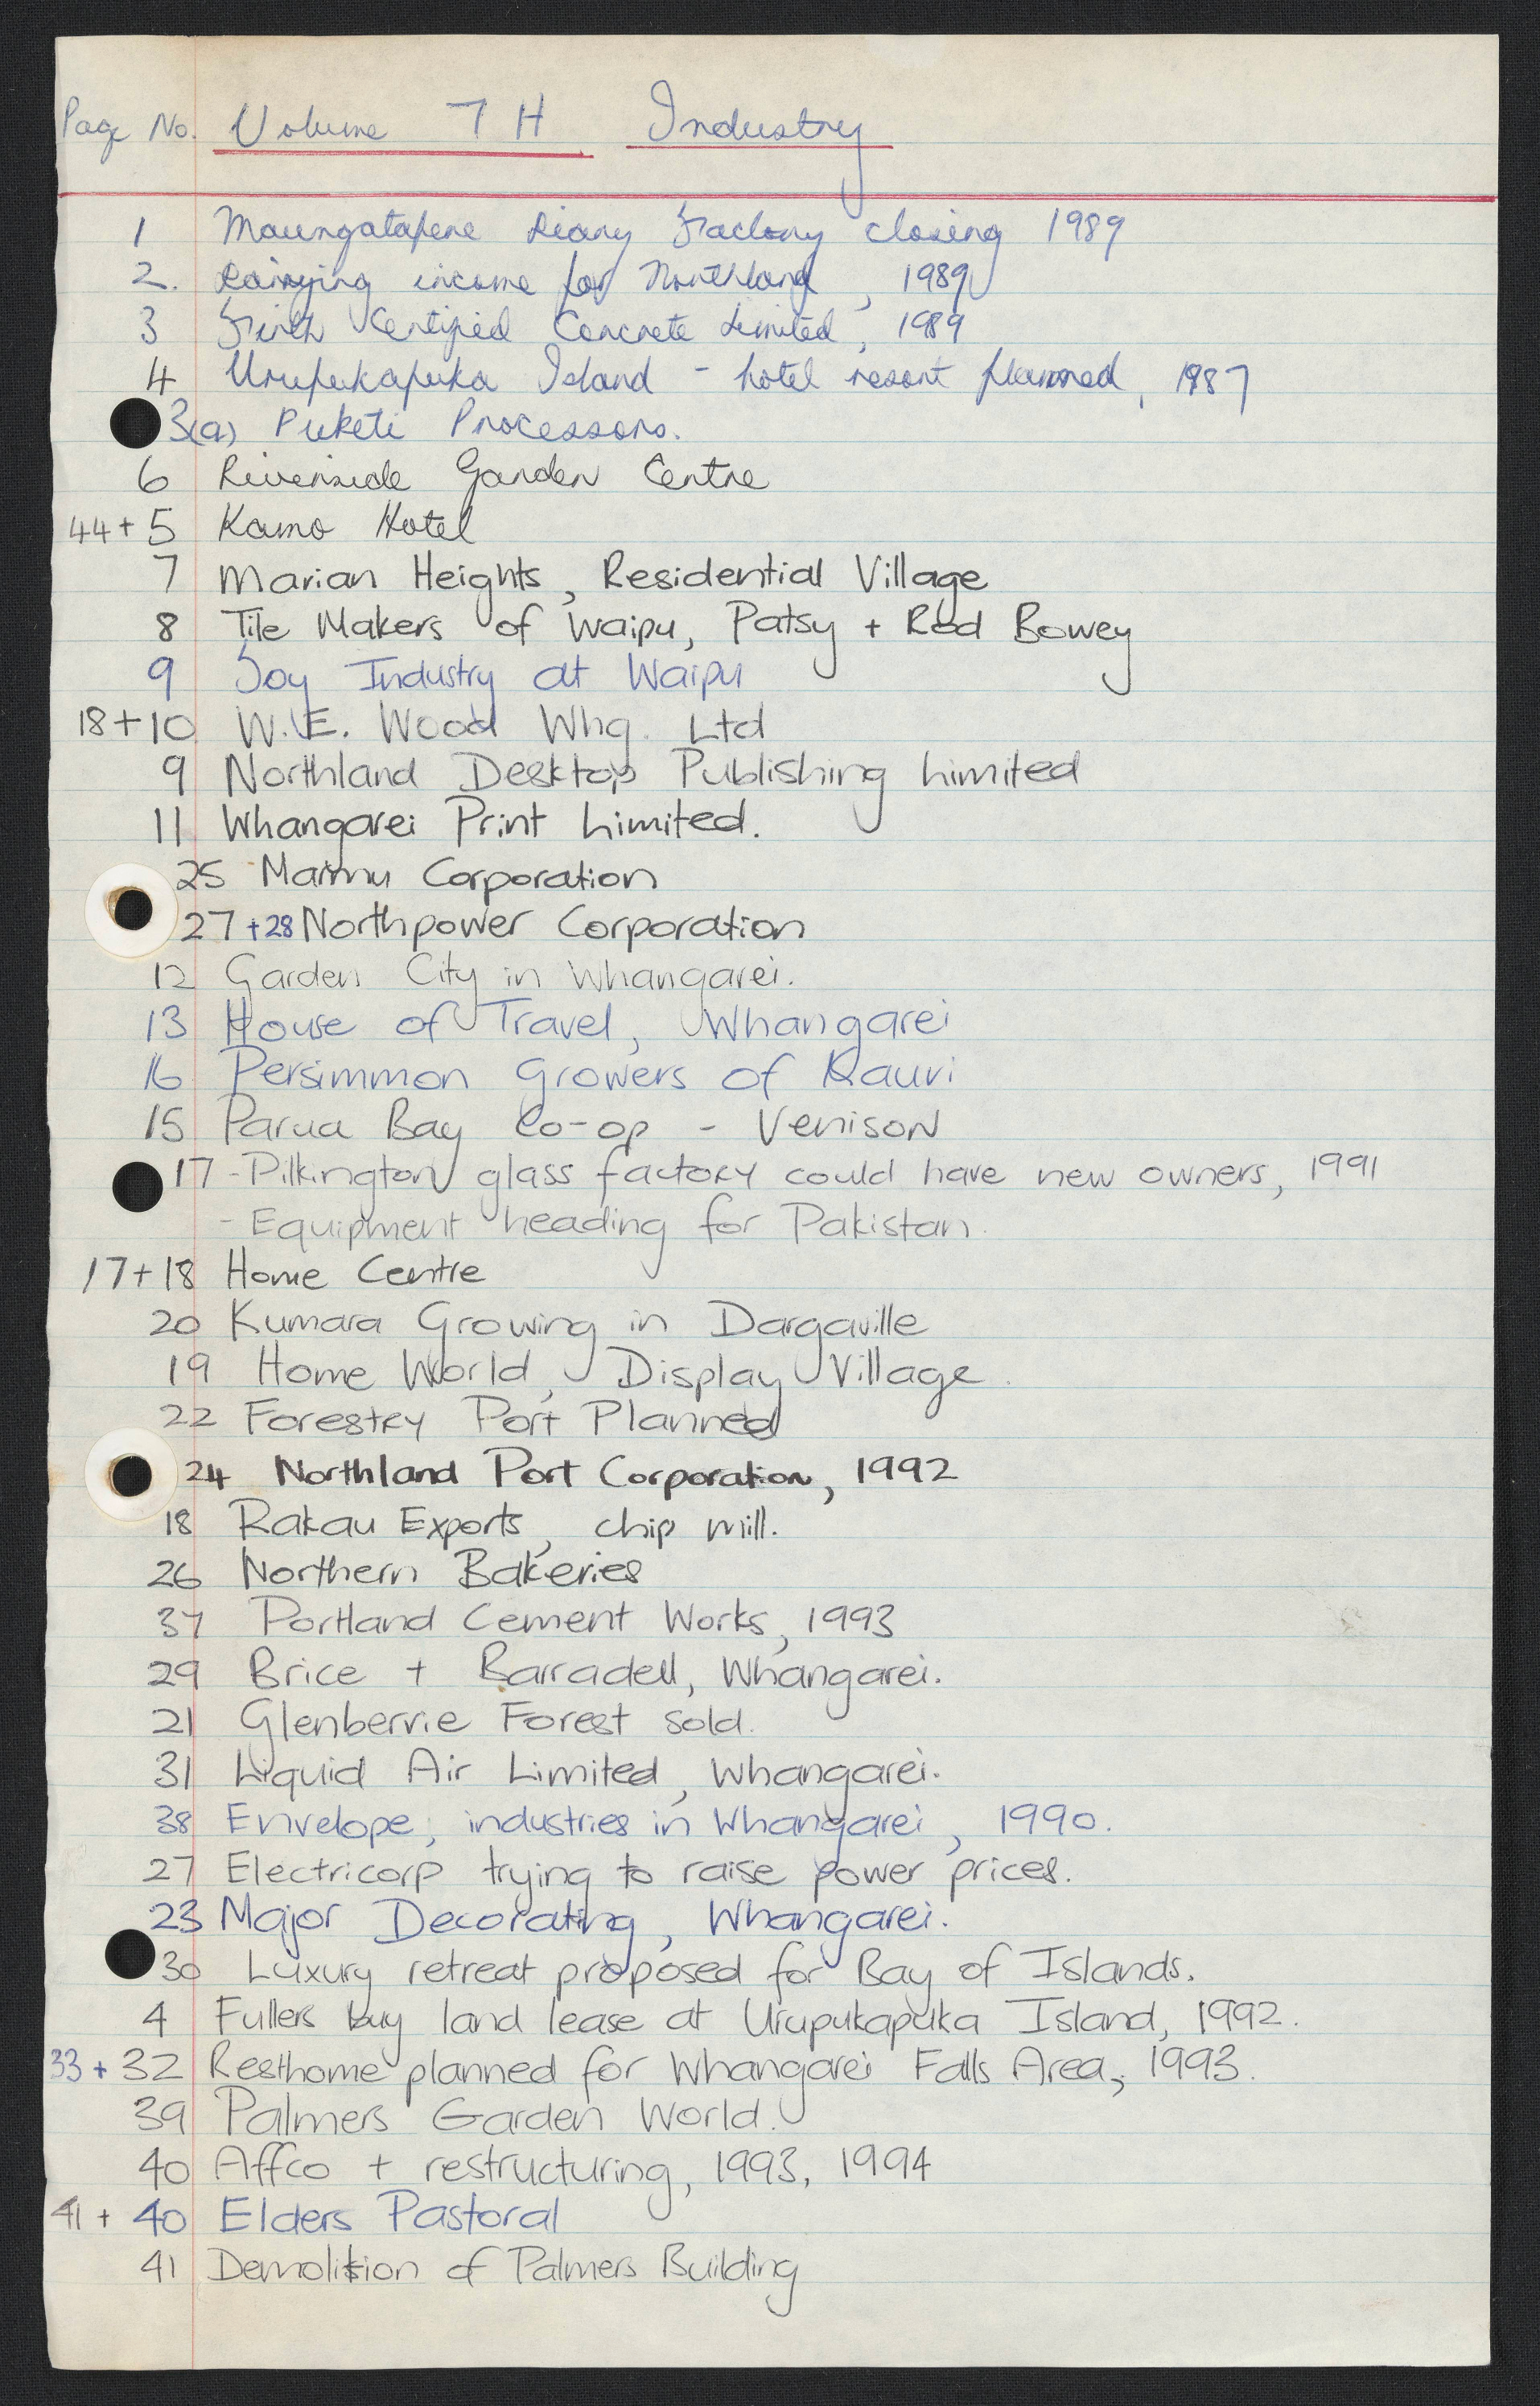 Page No. Volume 7H Industry
1 Maungatapere Diary Factory closing 1989
2. Dairying income for Northland, 1989
3 Firth Certified Concrete Limited, 1989
4 Urupukapuka Island - hotel resort planned, 1987
3(a) Puketi Processors.
6 Riverside Garden Centre
44+5 Kamo Hotel
7 Marian Heights, Residential Village
8 Tile Makers of Waipu, Patsy + Rod Bowey
9 Soy Industry at Waipu
18+10 W.E. Wood Whg. Ltd
9 Northland Desktop Publishing Limited
11 Whangarei Print Limited.
25 Corporation
27+28 Northpower Corporation
12 Garden City in Whangarei.
13 House of Travel, Whangarei
16 Persimmon Growers of Kauri
15 Parua Bay Co-op - Venison
17 - Pilkington glass factory could have new owners, 1991
- Equipment heading for Pakistan.
17+18 Home Centre
20 Kumara Growing in Dargaville
19 Home World, Display Village.
22 Forestry Port Planned
24 Northland Port Corporation, 1992
18 Rakau Exports, chip mill.
26 Northern Bakeries
37 Portland Cement Works, 1993
29 Brice + Barradell, Whangarei.
21 Glenbervie Forest sold.
31 Liquid Air Limited, Whangarei.
38 Envelope, industries in Whangarei, 1990.
27 Electricorp trying to raise power prices.
23 Major Decorating, Whangarei.
30 Luxury retreat proposed for Bay of Islands.
4 Fullers buy land lease at Urupukapuka Island, 1992.
33 + 32 Resthome planned for Whangarei Falls Area, 1993.
39 Palmers Garden World.
40 Affco + restructuring, 1993, 1994
41 + 40 Elders Pastoral
41 Demolition of Palmers Building